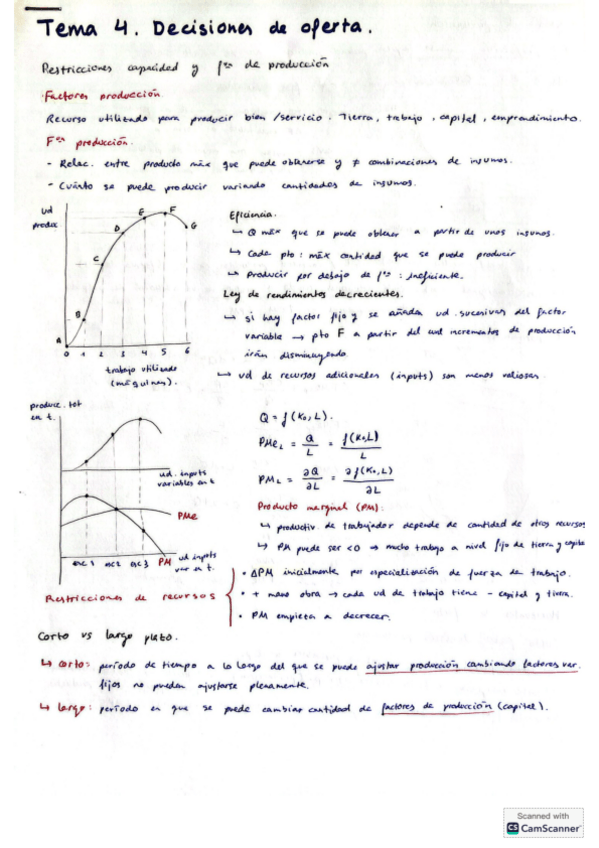 Tema 4. Decisiones de oferta.
Restricciones capacidad y fᶜᵒⁿ de producción
· Factores producción.
Recurso utilizado para producir bien /servicio. Tierra, trabajo, capital, emprendimiento.
Fᶜᵒⁿ producción.
- Relac. entre producto máx que puede obtenerse y ≠ combinaciones de insumos.
- Cuánto se puede producir variando cantidades de insumos.
ud
produc.
A
B
C
D
E
F
G
0 1 2 3 4 5 6
trabajo utilizado
(máquinas).
Eficiencia.
↳ Q máx que se puede obtener a partir de unos insumos.
↳ Cada pto: máx cantidad que se puede producir
↳ Producir por debajo de fᶜᵒⁿ: ineficiente.
Ley de rendimientos decrecientes.
↳ si hay factor fijo y se añaden ud. sucesivas del factor
variable → pto F a partir del cual incrementos de producción
irán disminuyendo
↳ ud de recursos adicionales (inputs) son menos valiosas.
produc. tot
en t.
ud. inputs
variables en t
PMe
esc 1 esc 2 esc 3 PM
ud inputs
var en t.
Q = f(K₀, L).
PMeL = Q/L = f(K₀,L)/L
PML = ∂Q/∂L = ∂f(K₀,L)/∂L
Producto marginal (PM):
↳ productiv. de trabajador depende de cantidad de otros recursos
↳ PM puede ser <0 → mucho trabajo a nivel fijo de tierra y capital
Restricciones de recursos
• ΔPM inicialmente por especialización de fuerza de trabajo.
• + mano obra → cada ud de trabajo tiene - capital y tierra.
• PM empieza a decrecer.
Corto vs largo plazo.
↳ corto: período de tiempo a lo largo del que se puede ajustar producción cambiando factores var.
fijos no pueden ajustarse plenamente.
↳ largo: período en que se puede cambiar cantidad de factores de producción (capital).
Scanned with
CS CamScanner